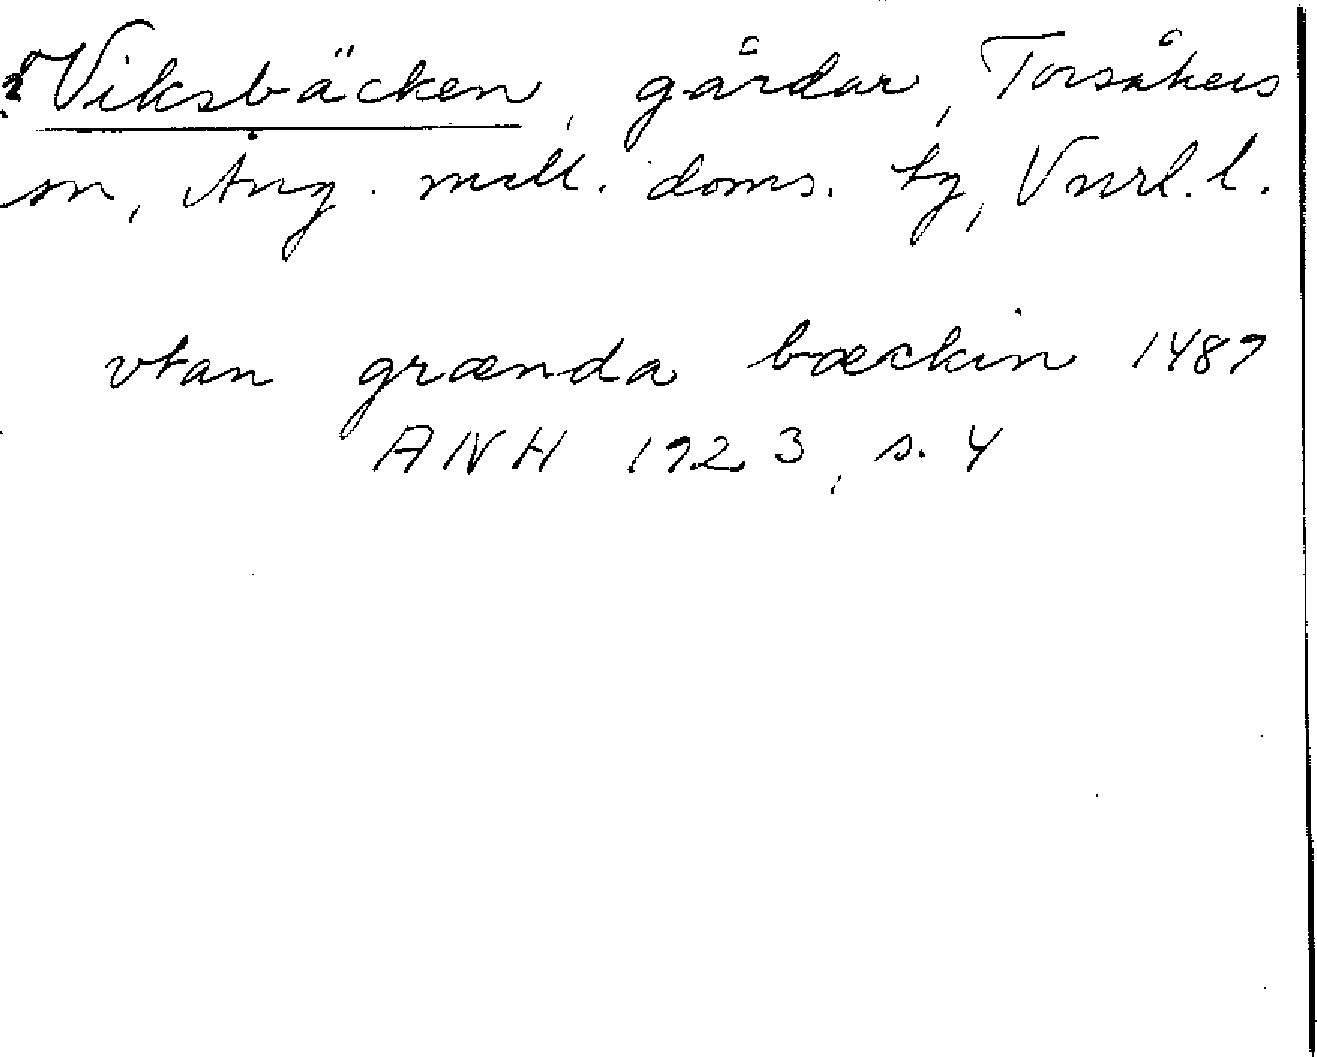 ? Viksbäcken, gårdar, Torsåkers
sn, Ång. mell. doms. tg, Vnrl. l.
vtan grænda bæckin 1489
ANH 1923, s. 4